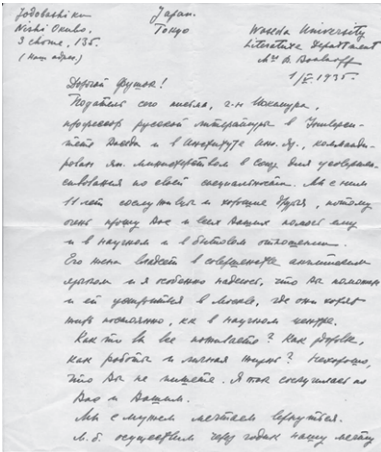 Japan.
Tokyo
Nishi Okubo,
3 chome, 135.
(Наш адрес)
Waseda University
Literature Department
Mrs B.
1/V. 1935.
Дорогой друг!
Податель сего письма, г-н
профессор русской литературы в Универси-
тете Васеда и в Институте ин. яз., командиро-
ван яп. министерством в Союз для усовершен-
ствования по своей специальности. Мы с ним
11 лет сослуживцы и хорошие друзья, потому
очень прошу Вас и всех Ваших помочь ему
и в научном и в бытовом отношении.
Его жена владеет в совершенстве английским
языком и я особенно надеюсь, что Вы поможете
и ей устроиться в Москве, где они хотят
жить постоянно, как в научном центре.
Как то Вы все поживаете? Как здоровье,
как работа и личная жизнь? Нехорошо,
что Вы не пишете. Я так соскучилась по
Вас и Вашим.
Мы с мужем мечтаем вернуться.
М. б. осуществим через годик нашу мечту